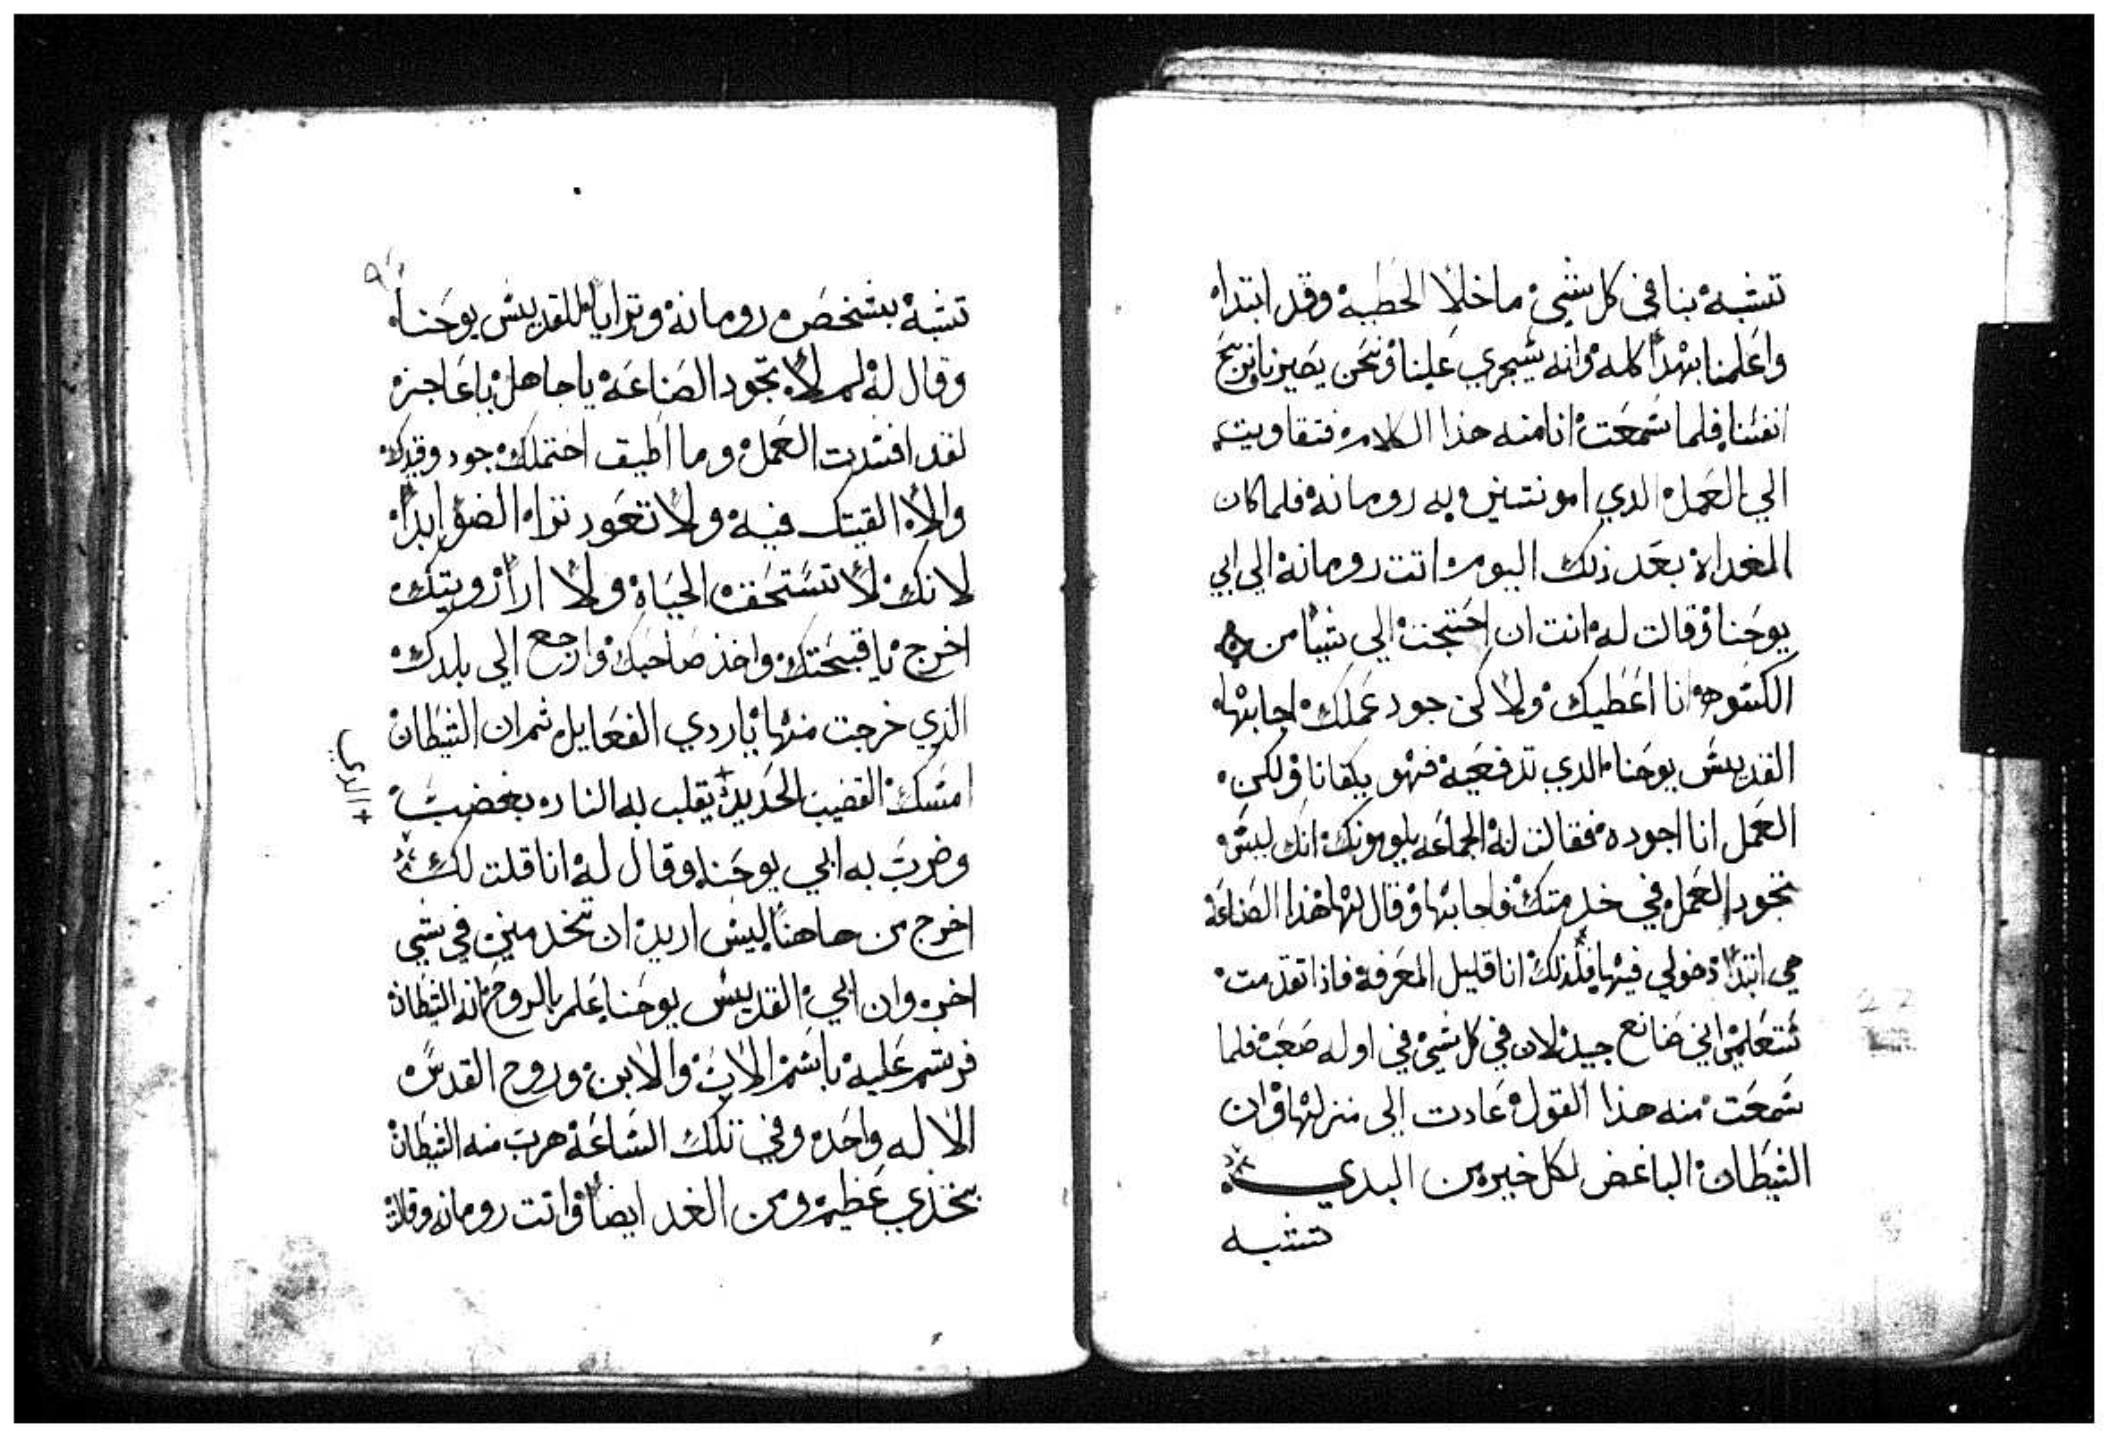 تشبه بنا في كل شيء ما خلا الخطيه وقد ابتدا
واعلمنا بهدا كله وانه سيجري علينا ونحن يصير نا نربح
انفسنا فلما سمعت انا منه هذا الكلام فتقاويت
الي العمل الدي امونتيني به رومانه فلما كان
المغداه بعد ذلك اليوم اتت رومانه الي ابي
يوحنا وقالت له انت ان احتجت الي شيا من
الكسوه انا اعطيك ولاكن جود عملك اجابتها
القديس يوحنا الدي تدفعيه فهو يكفانا ولكن
العمل انا اجوده فقالت له الجماعه يلومونك انك ليس
تجود العمل في خدمتك فاجابها وقال لها هذا الصناعة
هي ابتدا دخولي فيها فلذلك انا قليل المعرفة فاذا تقدمت
ستعلمي اني صانع جيد لان في كل شي في اوله صعب فلما
سمعت منه هذا القول عادت الي منزلها وان
الشيطان الباغض لكل خير من البدي
تشبه
تشبه بشخص رومانة وترايا للقديس يوحنا
وقال له لم لا تجود الصناعة يا جاهل يا عاجز
لقد افسدت العمل وما اطيق احتملك جود وقيدك
والا القيتك فيه ولا تعود تراه الضو ابدا
لانك لا تستحق الحياة ولا اراز رويتك
اخرج يا قبيحتك واخذ صاحبك وارجع الي بلدك
الذي خرجت منها يا ردي الفعايل ثم ان الشيطان
امسك القضيب الحديد + يقلب به النار بغضب
+ الدي
وضرب به ابي يوحنا وقال له انا قلت لك
اخرج من هاهنا ليس اريد ان تخدمني في شي
اخر وان ابي القديس يوحنا علم بالروح انه الشيطان
فرشم عليه باسم الاب والابن وروح القدس
الاله واحد وفي تلك الساعة هرب منه الشيطان
بخذي عظيم ومن الغد ايضا واتت رومانه وقالت